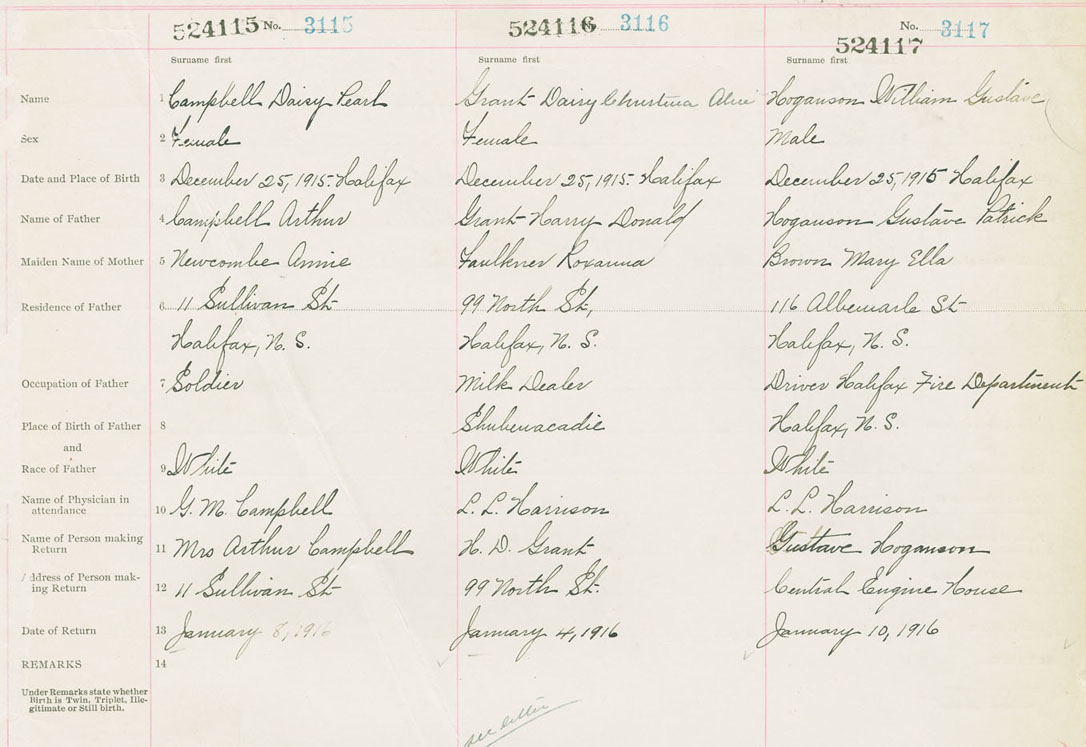 524115 No. 3115 524116 No. 3116 No. 3117
524117
Surname first Surname first Surname first
Name 1 Campbell Daisy Pearl Grant Daisy Christina Alice Hoganson William Gustave
Sex 2 Female Female Male
Date and Place of Birth 3 December 25, 1915. Halifax December 25, 1915. Halifax December 25, 1915 Halifax
Name of Father 4 Campbell Arthur Grant Harry Donald Hoganson Gustave Patrick
Maiden Name of Mother 5 Newcombe Annie Faulkner Roxanna Brown Mary Ella
Residence of Father 6 11 Sullivan St 99 North St, 116 Albemarle St
Halifax, N. S. Halifax, N. S. Halifax, N. S.
Occupation of Father 7 Soldier Milk Dealer Driver Halifax Fire Department
Place of Birth of Father 8 Shubenacadie Halifax, N. S.
and
Race of Father 9 White White White
Name of Physician in
attendance 10 G. M. Campbell L. L. Harrison L. L. Harrison
Name of Person making
Return 11 Mrs Arthur Campbell H. D. Grant Gustave Hoganson
Address of Person mak-
ing Return 12 11 Sullivan St 99 North St. Central Engine House
Date of Return 13 January 8, 1916 January 4, 1916 January 10, 1916
REMARKS 14
Under Remarks state whether
Birth is Twin, Triplet, Ille-
gitimate or Still birth.
see letter